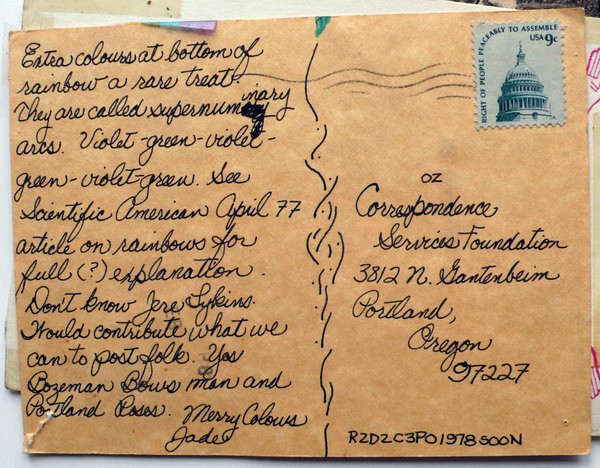 Extra colours at bottom of
rainbow a rare treat.
They are called supernuminary
arcs. Violet-green-violet-
green-violet-green. See
Scientific American April 77
article on rainbows for
full (?) explanation.
Don't know Jere Lykins.
Would contribute what we
can to post folk. Yas
Bozeman Bows man and
Portland Roses. Merry Colours
Jade
RIGHT OF PEOPLE PEACEABLY TO ASSEMBLE
USA 9c
OZ
Correspondence
Services Foundation
3812 N. Gantenbeim
Portland,
Oregon
97227
R2D2C3PO1978SOON